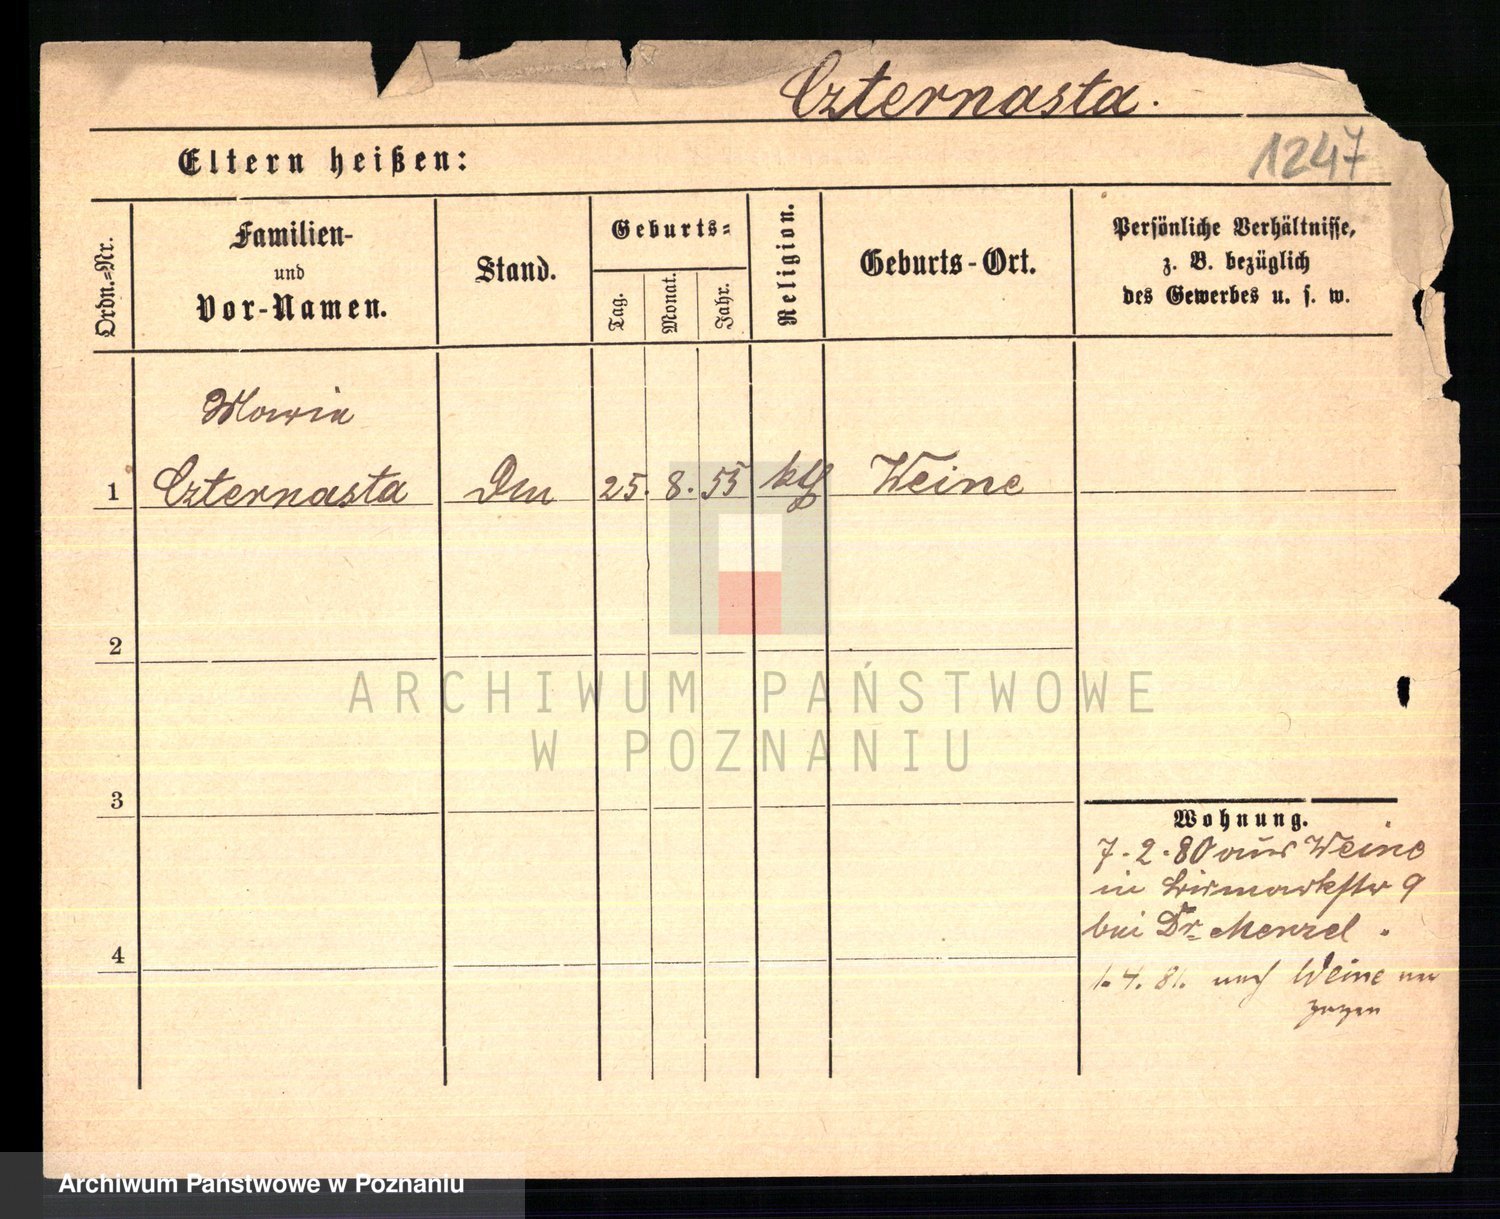 Czternasta.
1247
Eltern heißen:
Ordn.-Nr.
Familien-
und
Vor-Namen.
Stand.
Geburts-
Tag.
Monat.
Jahr.
Religion.
Geburts-Ort.
Persönliche Verhältnisse,
z. B. bezüglich
des Gewerbes u. s. w.
Maria
1 Czternasta Dm 25. 8. 55 kth Weine
2
ARCHIWUM PAŃSTWOWE
W POZNANIU
3
Wohnung.
7.2.80 aus Weine
in Bismarkstr 9
bei Dr. Menzel.
4
1.4.81. nach Weine
Archiwum Państwowe w Poznaniu